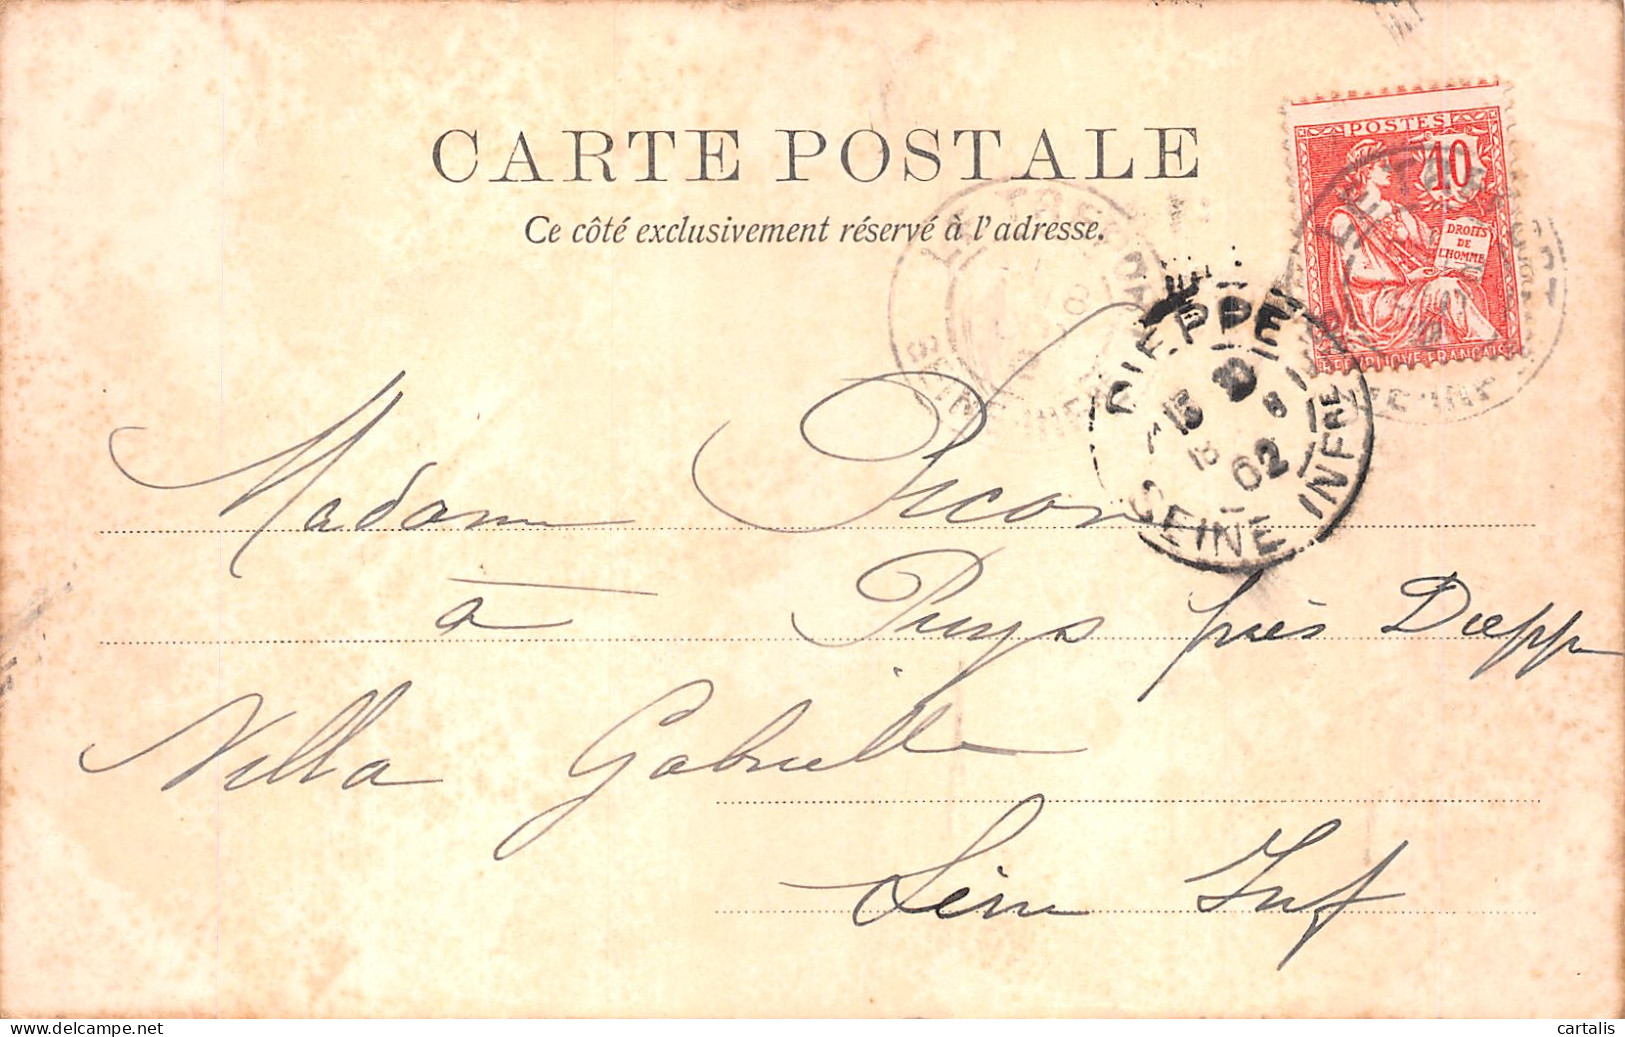 CARTE POSTALE
Ce côté exclusivement réservé à l'adresse.
POSTES
10
DROITS
DE
L'HOMME
REPUBLIQUE FRANÇAISE
LE TREPORT
SEINE INFRE
DIEPPE
13
8
02
SEINE INFRE
Madame Picon
à Puys près Dieppe
Villa Gabrielle
Seine Inf
cartalis